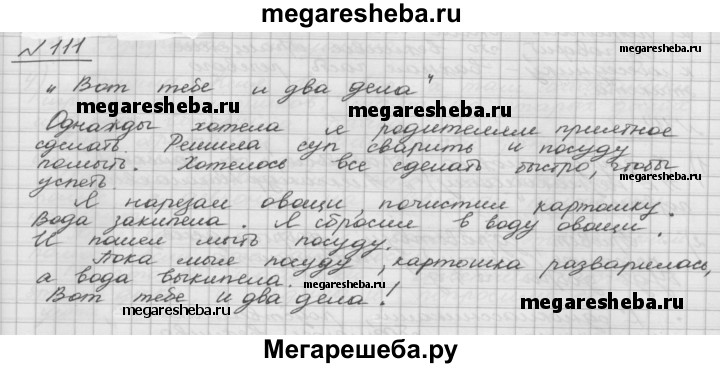 megaresheba.ru
№ 111
"Вот тебе и два дела"
megaresheba.ru
megaresheba.ru
Однажды хотела я родителям приятное
сделать. Решила суп сварить и посуду
помыть. Хотелось все сделать быстро, чтобы
успеть.
Я нарезал овощи, почистил картошку.
Вода закипела. Я сбросил в воду овощи.
И пошел мыть посуду.
Пока мыл посуду, картошка разварилась,
а вода выкипела.
megaresheba.ru
Вот тебе и два дела!
megaresheba.ru
Мегарешеба.ру